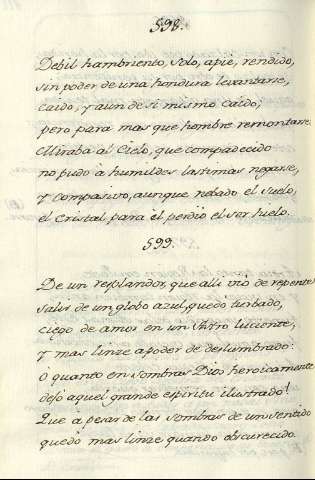 598.
Debil hambriento, solo, apie, rendido,
sin poder de una hondura levantarse,
Caido, y aun de si mismo Caido;
pero para mas que hombre remontarse
Miraba al Cielo, que compadecido
no pudo à humildes lastimas negarse,
y Compasivo, aunque nebado el suelo,
el Cristal para el perdio el ser hielo.
599.
De un resplandor, que alli vio de repente
Salir de un globo azul, quedó turbado,
ciego de amor en un lustro luciente,
y mas linze a poder de deslumbrado:
o quanto en sombras Dios heroicamente
dejo aquel grande espiritu ilustrado!
Que à pesar de las sombras de un sentido
quedo mas linze quando obscurecido.